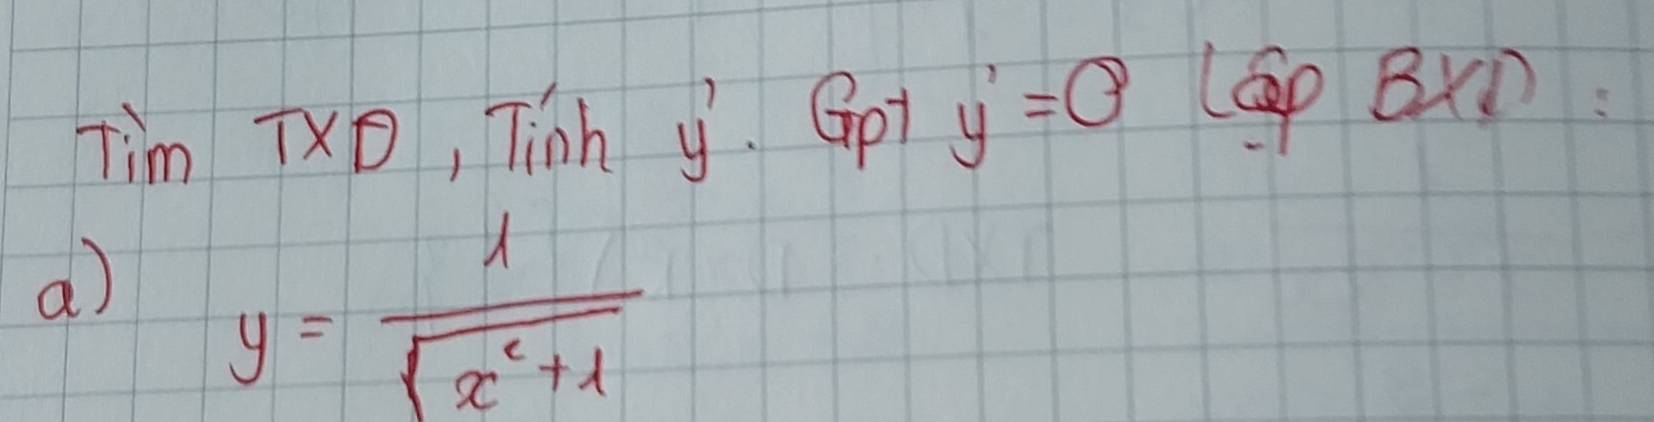 Tìm TXD, Tính y'. Gpt y' = 0 Lập BXD :
a) y = 1 / √(x² + 1)